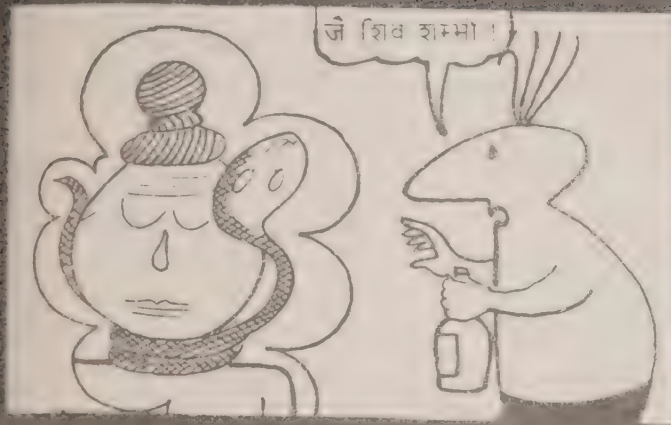 जै शिव शम्भो !